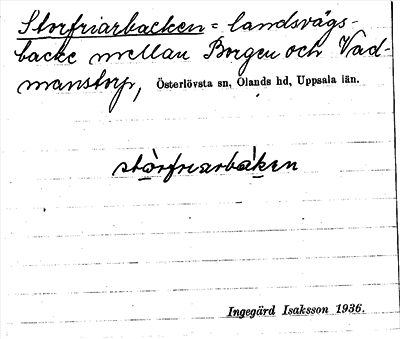 Storfriarbacken = landsvägs-
backe mellan Borgen och Vad-
manstorp, Österlövsta sn, Olands hd, Uppsala län.
stòrfriarbàken
Ingegärd Isaksson 1936.